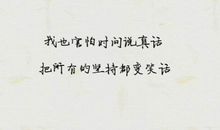 我也害怕时间说真话
把所有的坚持都变笑话